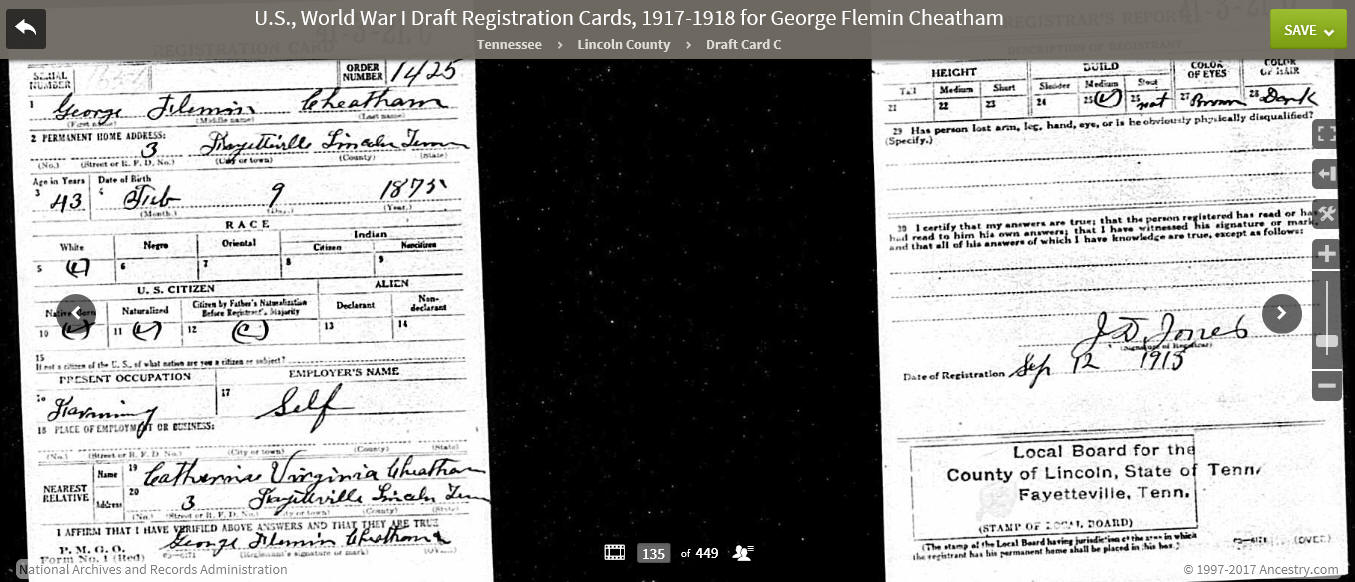 U.S., World War I Draft Registration Cards, 1917-1918 for George Flemin Cheatham
Tennessee › Lincoln County › Draft Card C
SAVE
REGISTRATION CARD
SERIAL NUMBER
ORDER NUMBER 1425
1 George Flemin Cheatham
(First name) (Middle name) (Last name)
2 PERMANENT HOME ADDRESS:
3 Fayetteville Lincoln Tenn
(No.) (Street or R. F. D. No.) (City or town) (County) (State)
Age in Years Date of Birth
3 43 4 Feb 9 1875
(Month.) (Day.) (Year.)
RACE
White Negro Oriental Indian
Citizen Noncitizen
5 6 7 8 9
U. S. CITIZEN ALIEN
Native Born Naturalized Citizen by Father's Naturalization Before Registrant's Majority Declarant Non-declarant
10 11 12 13 14
15
If not a citizen of the U. S., of what nation are you a citizen or subject?
PRESENT OCCUPATION EMPLOYER'S NAME
16 Farming 17 Self
18 PLACE OF EMPLOYMENT OR BUSINESS:
(No.) (Street or R. F. D. No.) (City or town) (County) (State)
NEAREST RELATIVE
Name 19 Catherine Virginia Cheatham
Address 20 3 Fayetteville Lincoln Tenn
(No.) (Street or R. F. D. No.) (City or town) (County) (State)
I AFFIRM THAT I HAVE VERIFIED ABOVE ANSWERS AND THAT THEY ARE TRUE
P. M. G. O.
Form No. 1 (Red) George Flemin Cheatham
(Registrant's signature or mark) (OVER)
REGISTRAR'S REPORT
DESCRIPTION OF REGISTRANT
HEIGHT BUILD COLOR OF EYES COLOR OF HAIR
Tall Medium Short Slender Medium Stout
21 22 23 24 25 26 not 27 Brown 28 Dark
29 Has person lost arm, leg, hand, eye, or is he obviously physically disqualified?
(Specify.)
30 I certify that my answers are true; that the person registered has read or has
had read to him his own answers; that I have witnessed his signature or mark,
and that all of his answers of which I have knowledge are true, except as follows:
J. D. Jones
(Signature of Registrar)
Date of Registration Sep 12 1918
Local Board for the
County of Lincoln, State of Tenn.
Fayetteville, Tenn.
(STAMP OF LOCAL BOARD)
(The stamp of the Local Board having jurisdiction of the area in which
the registrant has his permanent home shall be placed in this box.)
(OVER)
135 of 449
National Archives and Records Administration
© 1997-2017 Ancestry.com